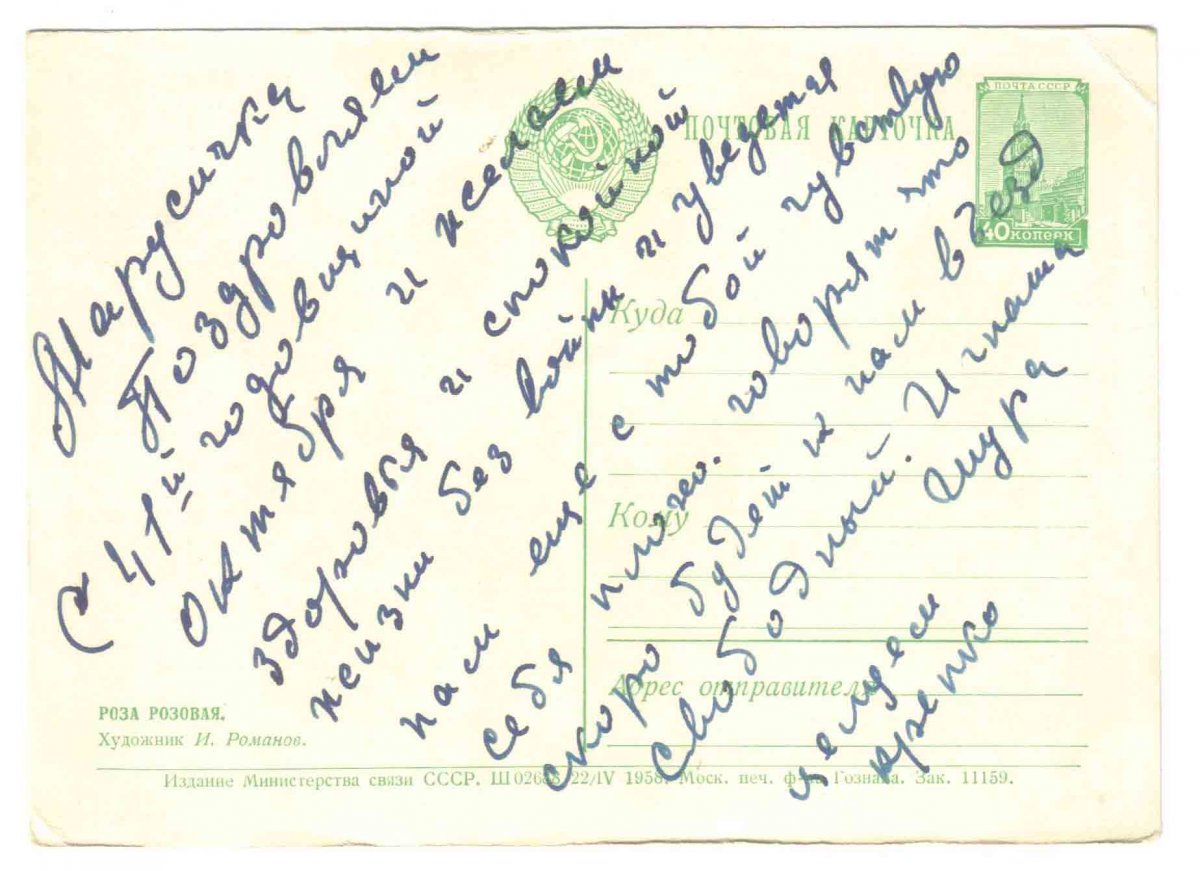 ПОЧТОВАЯ КАРТОЧКА
ПОЧТА СССР
40 КОПЕЕК
Марусичка
Поздровляем
С 41й годовщиной
октября и желаем
здоровья и спокойной
жизни без войны и уведетя
нам еще с тобой чувствую
себя плохо. говорят что
скоро будет и нам въезд
свободный. Игнаша
целуем Шура
крепко
Куда
Кому
Адрес отправителя
РОЗА РОЗОВАЯ.
Художник И. Романов.
Издание Министерства связи СССР. 22/IV 1958. Моск. печ. ф-ка Гознака. Зак. 11159.